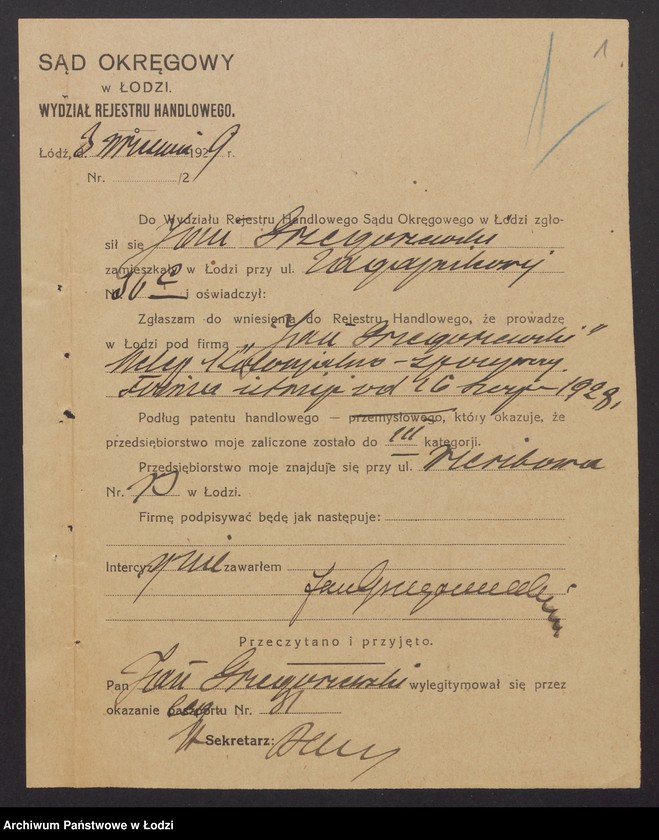 1
SĄD OKRĘGOWY
w ŁODZI.
WYDZIAŁ REJESTRU HANDLOWEGO.
Łódź, d. 3 1929 r.
Nr. /2
Do Wydziału Rejestru Handlowego Sądu Okręgowego w Łodzi zgło-
sił się Jan Grzegorzewski
zamieszkały w Łodzi przy ul. Zagajnikowej
i oświadczył:
Zgłaszam do wniesienia do Rejestru Handlowego, że prowadzę
w Łodzi pod firmą „Jan Grzegorzewski"
sklep kolonjalno-spożywczy.
Firma istnieje od 16 1928.
Podług patentu handlowego — przemysłowego, który okazuje, że
przedsiębiorstwo moje zaliczone zostało do III kategorji.
Przedsiębiorstwo moje znajduje się przy ul.
Nr. w Łodzi.
Firmę podpisywać będę jak następuje:
Intercyzy nie zawarłem
Jan Grzegorzewski
Przeczytano i przyjęto.
Pan Jan Grzegorzewski wylegitymował się przez
okazanie paszportu Nr.
Sekretarz:
Archiwum Państwowe w Łodzi